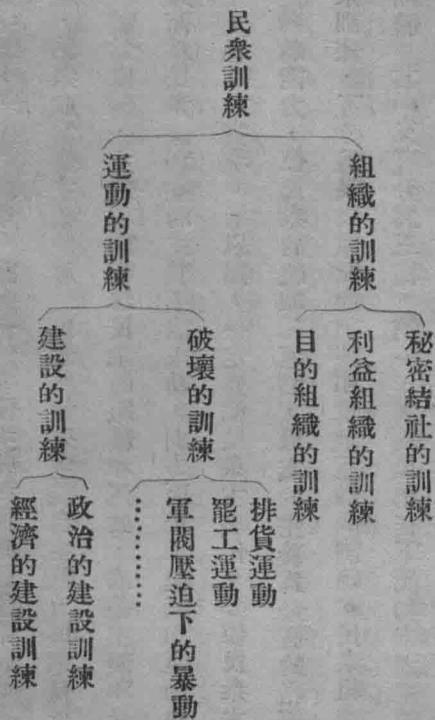 民衆訓練
組織的訓練
秘密結社的訓練
利益組織的訓練
目的組織的訓練
運動的訓練
破壞的訓練
排貨運動
罷工運動
軍閥壓迫下的暴動
………
建設的訓練
政治的建設訓練
經濟的建設訓練